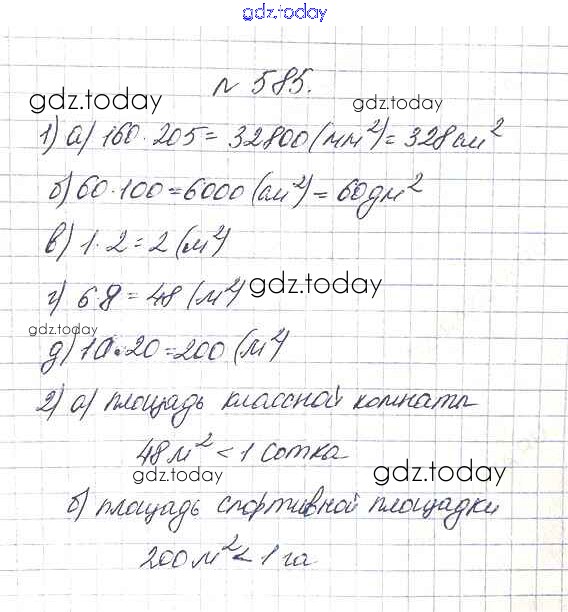 gdz.today
№ 585.
gdz.today gdz.today
1) а) 160 · 205 = 32800 (мм²) = 328 см²
б) 60 · 100 = 6000 (см²) = 60 дм²
в) 1 · 2 = 2 (м²)
г) 6 · 8 = 48 (м²) gdz.today
gdz.today
д) 10 · 20 = 200 (м²)
2) а) площадь классной комнаты
48 м² < 1 сотка
gdz.today gdz.today
б) площадь спортивной площадки
200 м² < 1 га
gdz.today